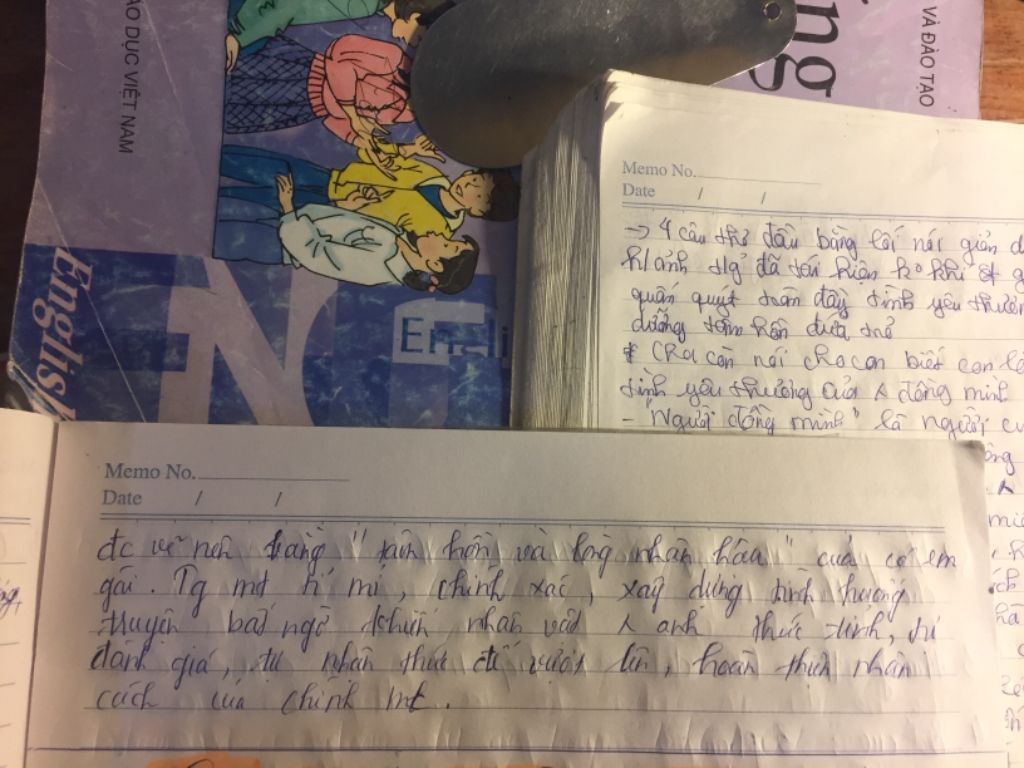 ÁO DỤC VIỆT NAM
English
Engli
ếng
VÀ ĐÀO TẠO
Memo No.
Date / /
→ 4 câu thơ đầu bằng lối nói giản d
h/ảnh đã tái hiện ko khí g
quấn quýt tràn đầy tình yêu thươn
dưỡng tâm hồn đứa trẻ
* Cha còn nói cho con biết con l
tình yêu thương của đồng mình
- "Người đồng mình" là người
Memo No.
Date / /
đc vẽ nên bằng "tâm hồn và lòng nhân hậu" của cô em
gái. Tg mt tỉ mỉ, chính xác, xây dựng tình huống
truyện bất ngờ khiến nhân vật anh thức tỉnh, tự
đánh giá, tự nhận thức để vươn lên, hoàn thiện nhân
cách của chính mk.